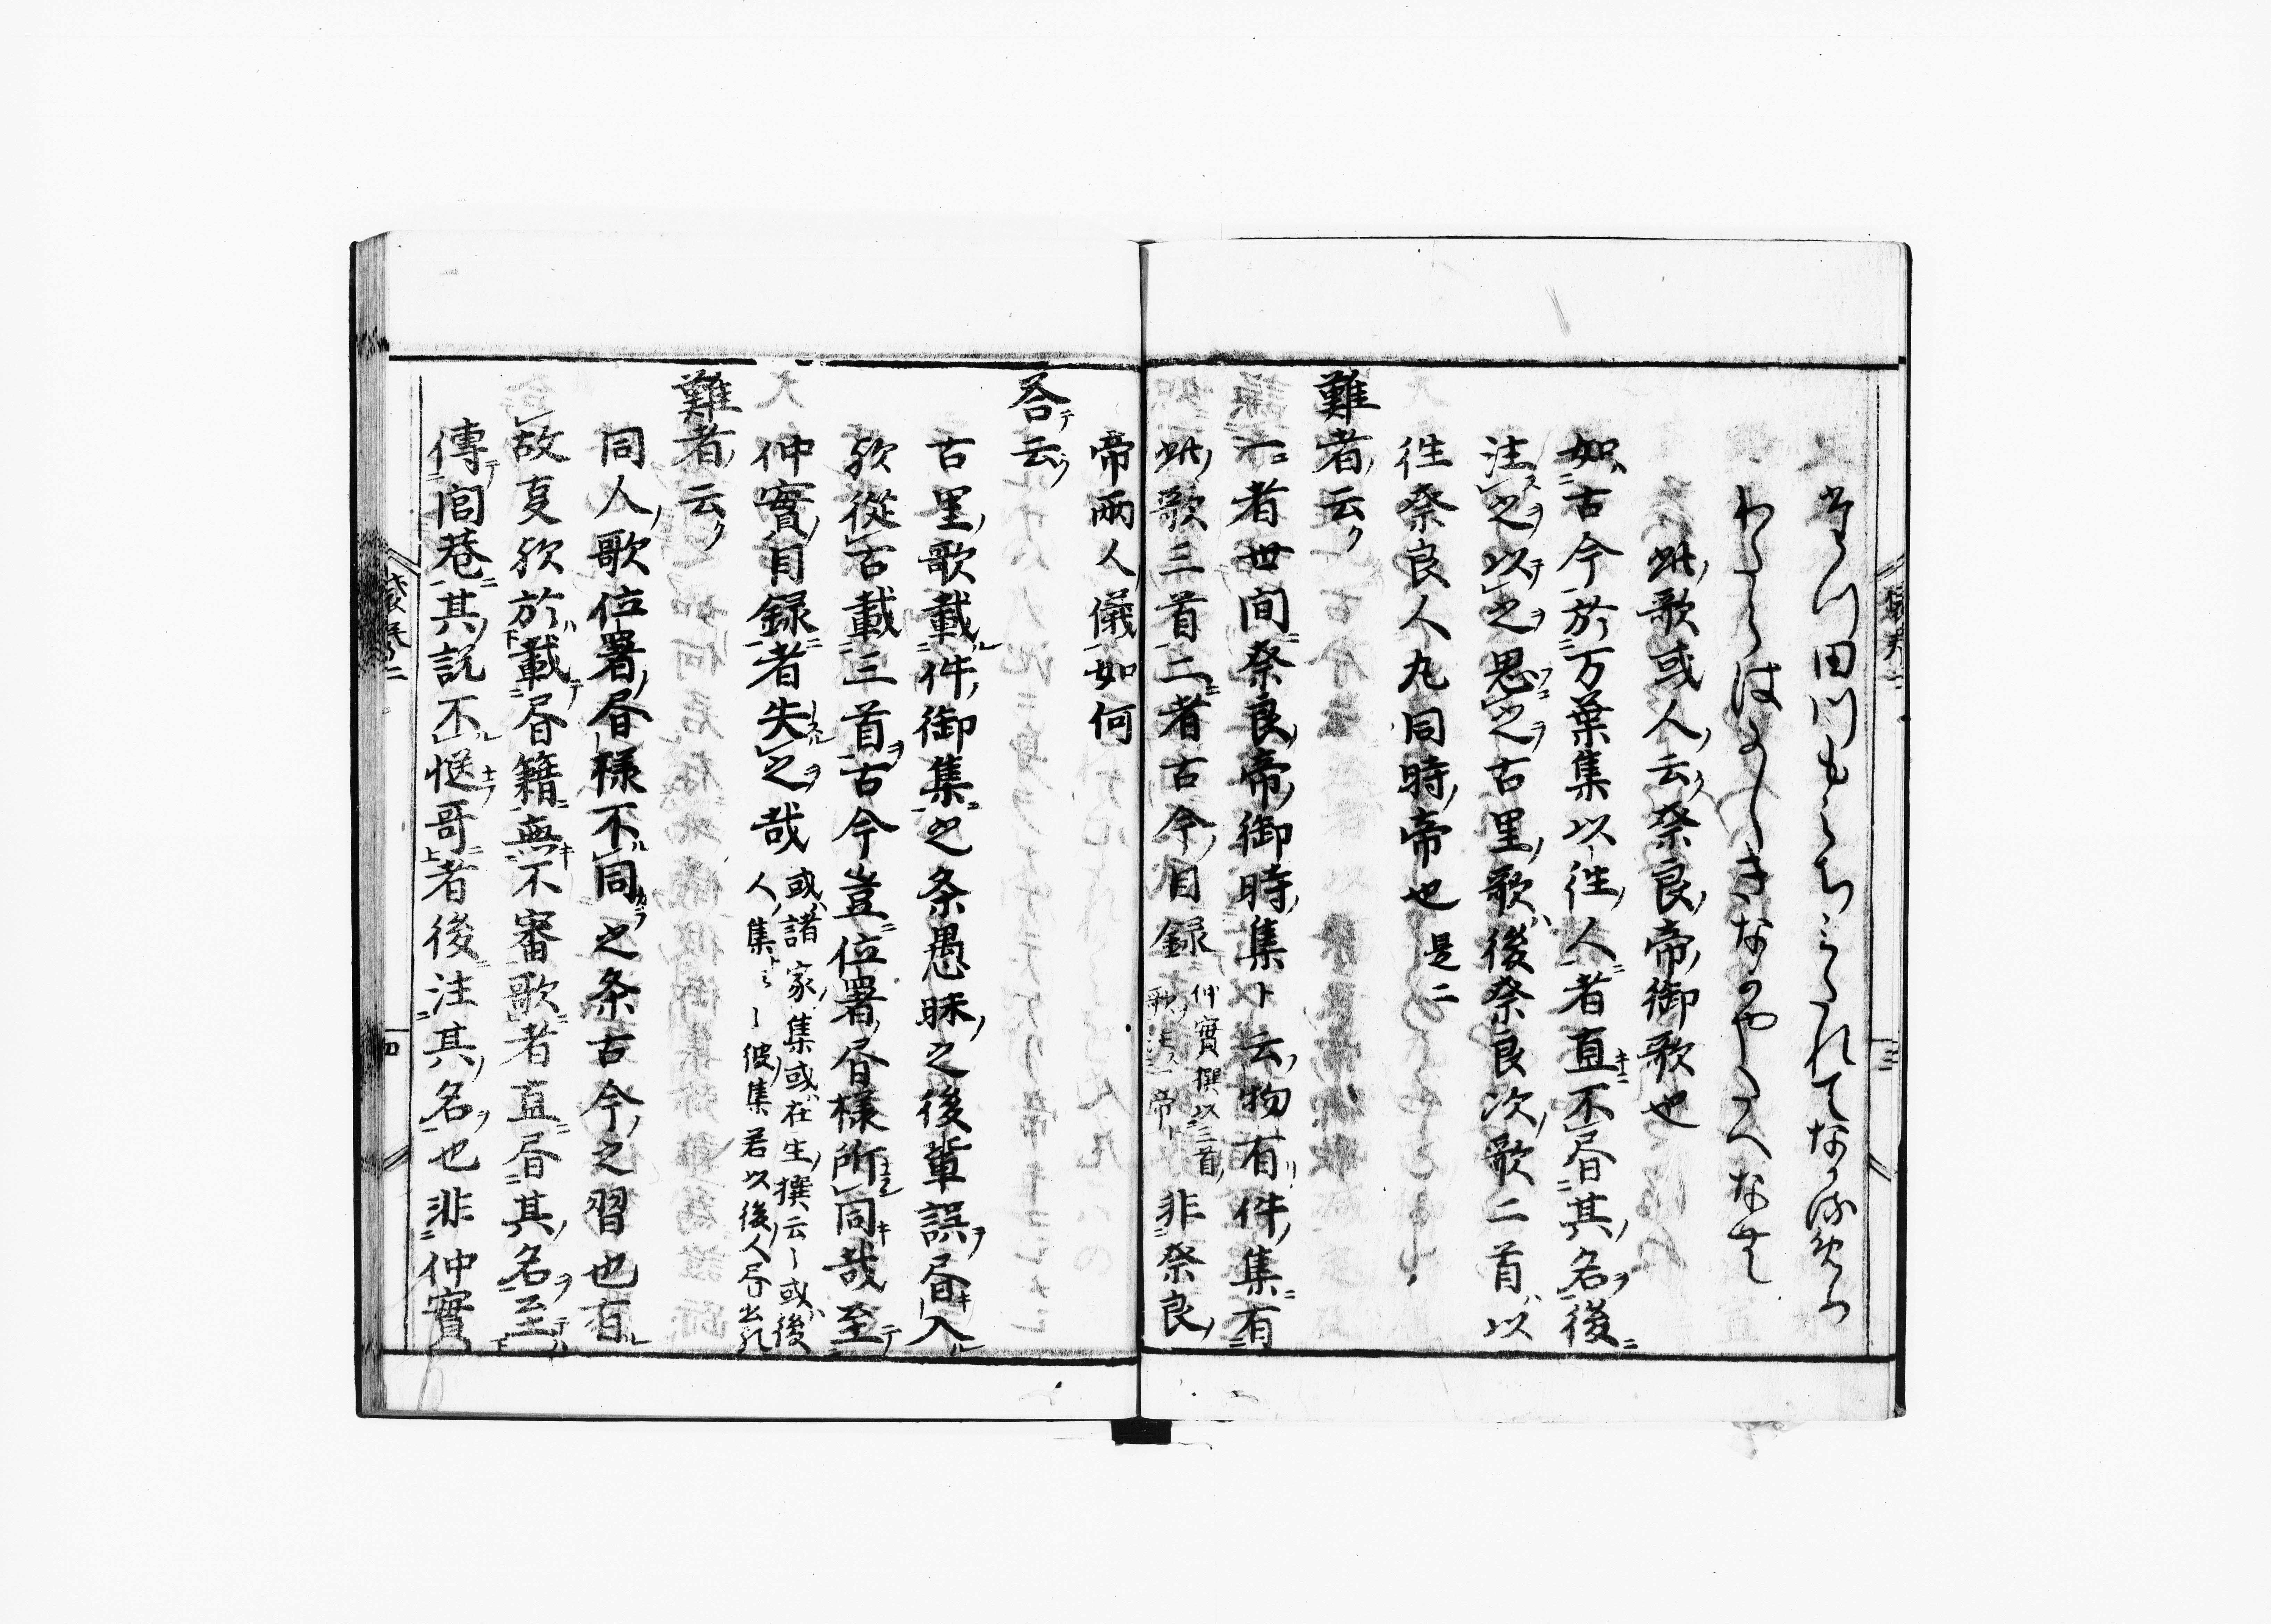 たつ田川もみちみたれてなかるめり
わたらはにしきなかやたえなむ
此歌或人云奈良帝御歌也
如古今於万葉集以徃人者直不昼其名後
注之以之思之古里歌後奈良次歌二首以
徃奈良人丸同時帝也是二
難者云
一者世間奈良帝御時集ト云物有件集有
此歌三首二者古今目録
仲實撰以三首
非奈良
帝兩人儀如何
答云
古里歌載件御集之条愚昧之後輩誤昼入
欤從古載三首古今豈位署昼樣所同哉至
仲實目録者失之哉
或諸家集或在生撰云〻或後
人集〻彼集若以後人昼出凡
難者云
同人歌位署昼樣不同之条古今之習也有
故叓欤於載昼籍無不審歌者直昼其名至
傳閭巷其説不慥哥者後注其名也非仲實